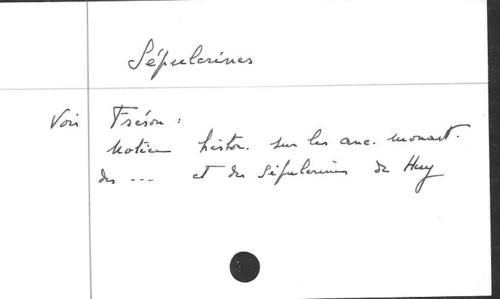 Sépulcrines
Voir Fréson :
Notice histor. sur les anc. monast.
des --- et des Sépulcrines de Huy